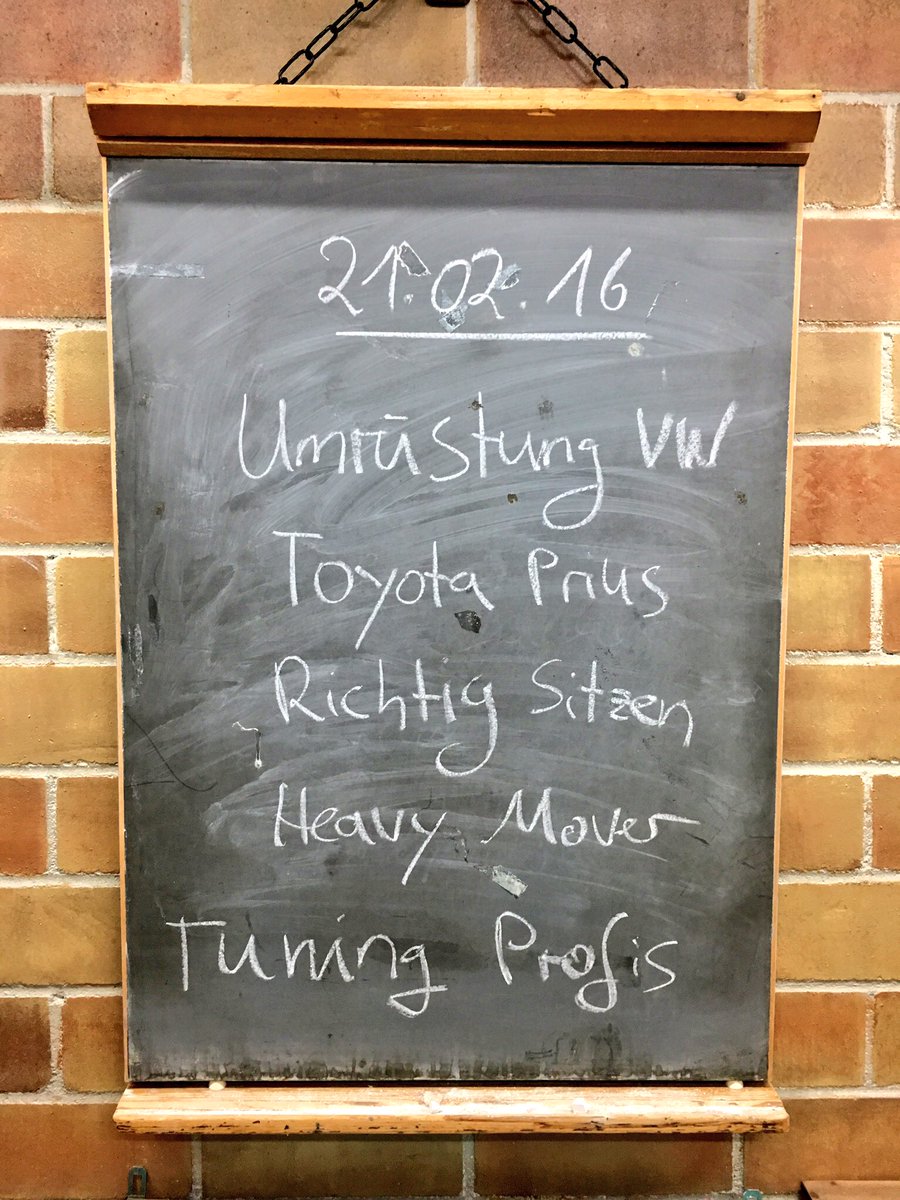 21.02.16
Umrüstung VW
Toyota Prius
Richtig Sitzen
Heavy Mover
Tuning Profis